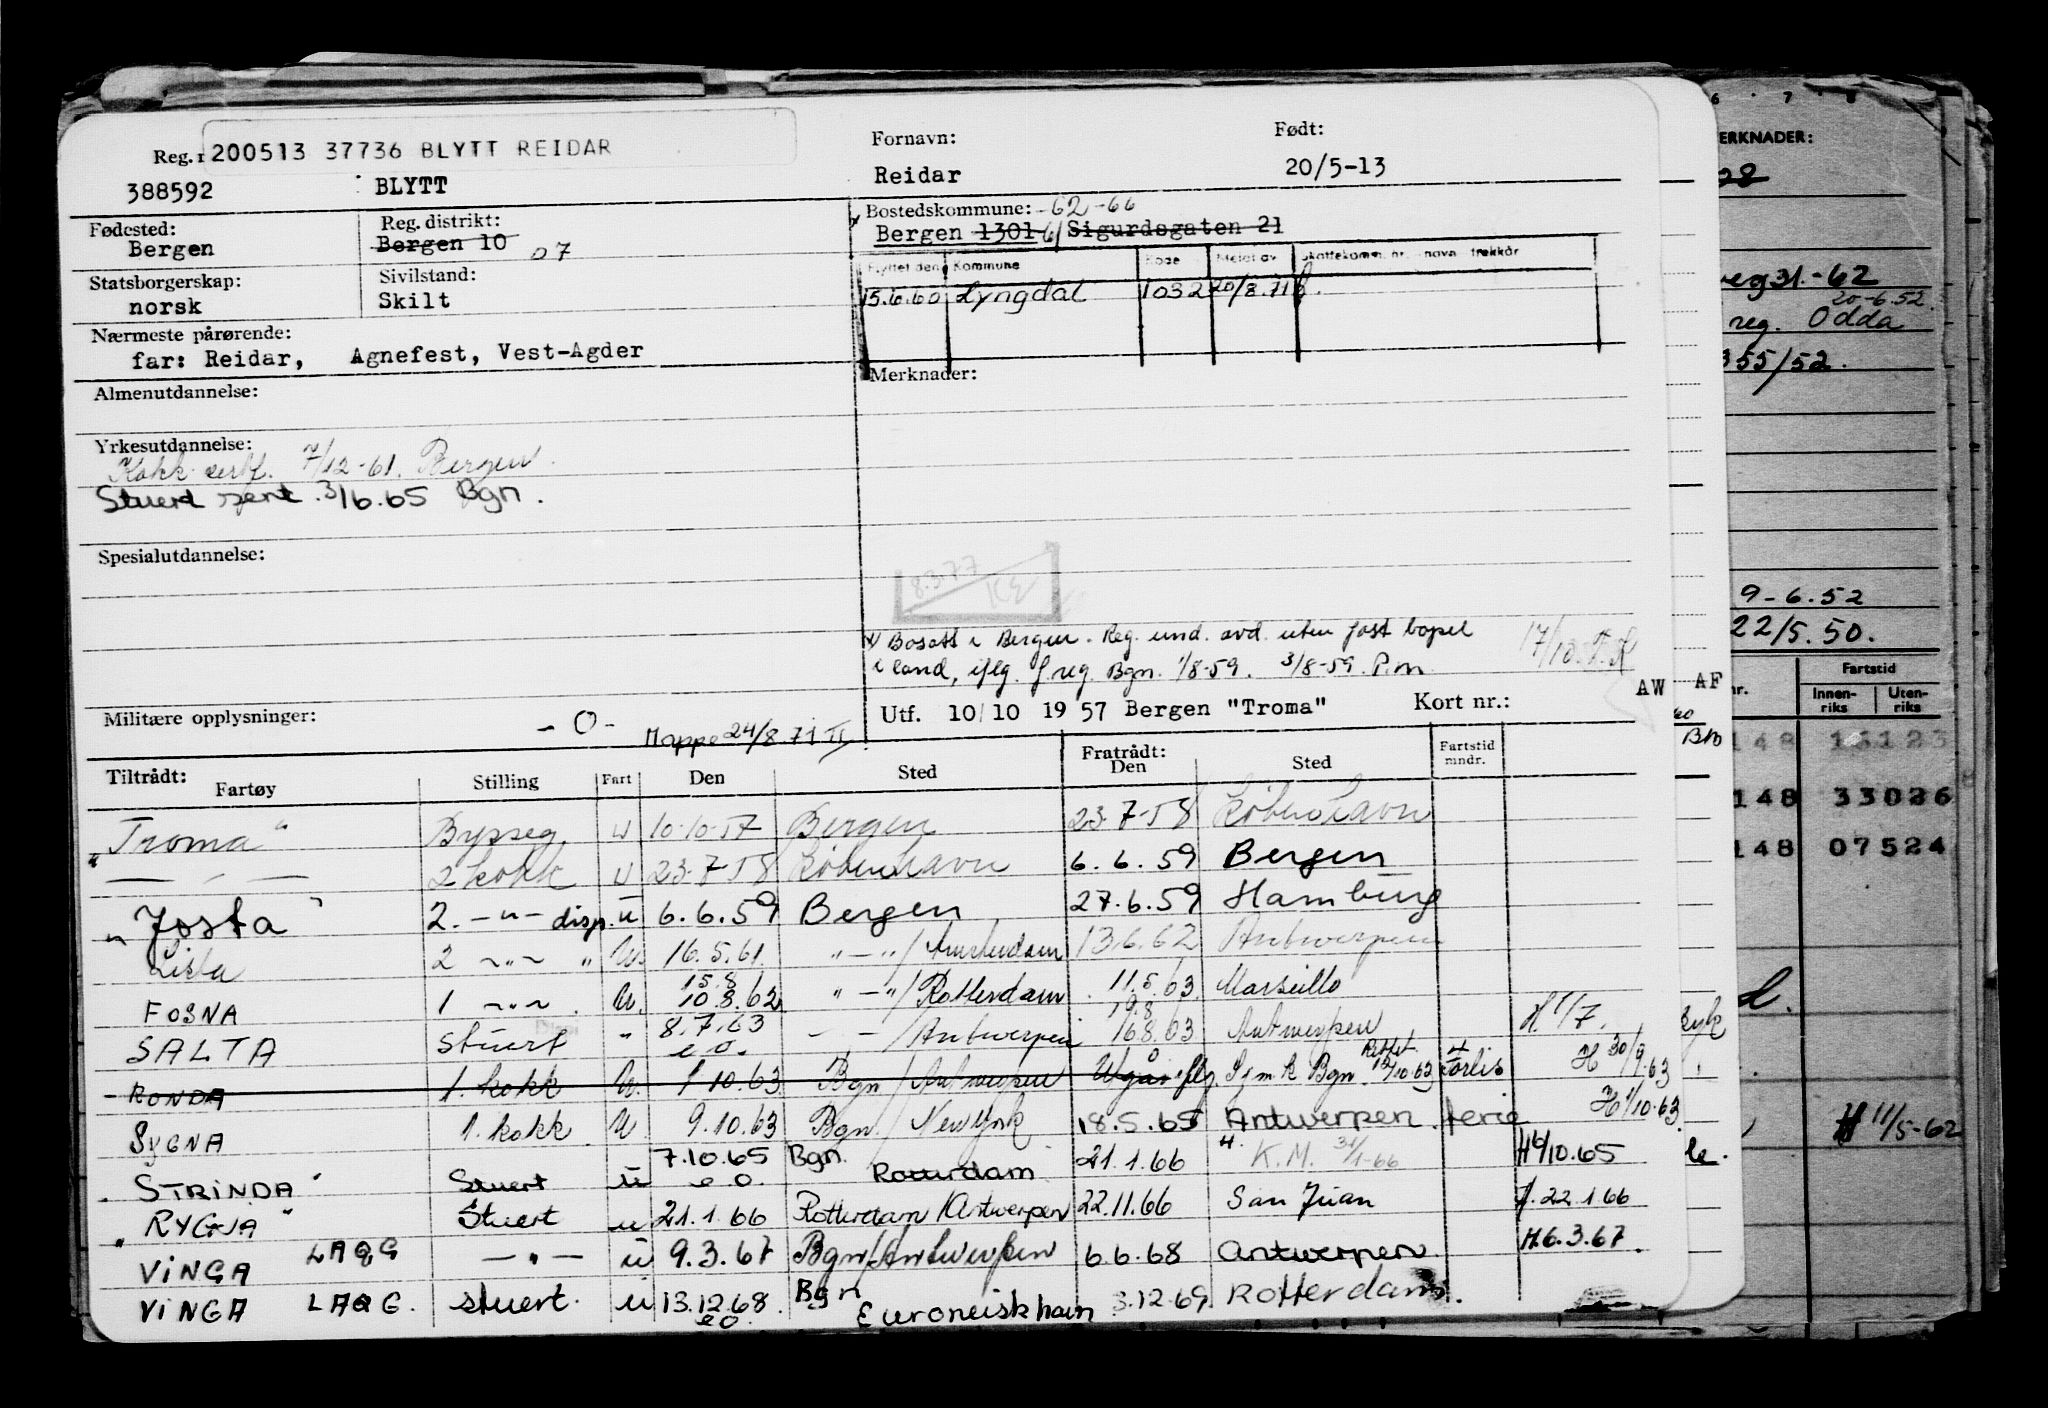 Reg.nr. 200513 37736 BLYTT REIDAR
Fornavn: Født:
388592 BLYTT Reidar 20/5-13
Fødested: Reg. distrikt: Bostedskommune: 62-66
Bergen Bergen 10 07 Bergen 1301 Sigurdsgaten 21
Statsborgerskap: Sivilstand: Flyttet den Kommune Kode Meldt av Skattekomm. nr. navn trekkår
norsk Skilt 15.6.60 Lyngdal 1032 20/8.71
Nærmeste pårørende:
far: Reidar, Agnefest, Vest-Agder
Almenutdannelse: Merknader:
Yrkesutdannelse:
Kokk sertf. 7/12-61. Bergen.
Stuert sert. 3/6.65 Bgn.
Spesialutdannelse:
8.3.77 KE
x/ Bosatt i Bergen. Reg. und. avd. uten fast bopel
i land, iflg. f. reg. Bgn. 1/8-59. 3/8-59. P.m.
17/10.
AW AF
Militære opplysninger: -0- Mappe 24/8.71 II Utf. 10/10 1957 Bergen "Troma" Kort nr.:
Tiltrådt: Fartøy Stilling Fart Den Sted Fratrådt: Den Sted Fartstid mndr.
"Troma" Bysseg. u 10-10-57 Bergen 23-7-58 København
" — " — 2 kokk u 23-7-58 København 6.6.59 Bergen
"Josta" 2. -"- disp. u 6.6.59 Bergen 27.6.59 Hamburg
Lista 2 -"- " u. 16.5.61. "-"/Amsterdam 13.6.62 Antwerpen
FOSNA 1 -"- u. 15.8 10.8.62 "-"/Rotterdam 11.5.63 Marseille
SALTA stuert " 8.7.63 e.o. - -/Antwerpen 19.8 16.8.63 Antwerpen H 1/7.
RONDA 1. kokk u. 1.10.63 Bgn/Antwerpen Utgår iflg. Sjm.k Bgn. Rettet 12/10.63 H 30/9.63
SYGNA 1. kokk u. 9.10.63 Bgn/New York 18.5.65 Antwerpen. ferie H 1/10.63
"STRINDA" Stuert u 7.10.65 e.o. Bgn. Rotterdam 21.1.66 K.M. 31/1-66 H 6/10.65
"RYGJA" Stuert u 21.1.66 Rotterdam/Antwerpen 22.11.66 San Juan H. 22.1.66
VINGA LAQG -"- u 9.3.67 Bgn/Antwerpen 6.6.68 Antwerpen H.6.3.67.
VINGA LAQG. stuert. u 13.12.68. e.o. Bgn Euroneiskhavn 3.12.69. Rotterdam.
6 7 8
MERKNADER:
28
31.-62
20-6.52
reg. Odda
355/52.
9-6.52
22/5.50.
nr. Fartstid
Innen-riks Uten-riks
148 16123
148 33026
148 07524
H 11/5-62